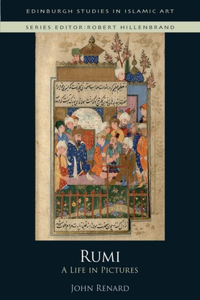 EDINBURGH STUDIES IN ISLAMIC ART
SERIES EDITOR: ROBERT HILLENBRAND
RUMI
A LIFE IN PICTURES
JOHN RENARD